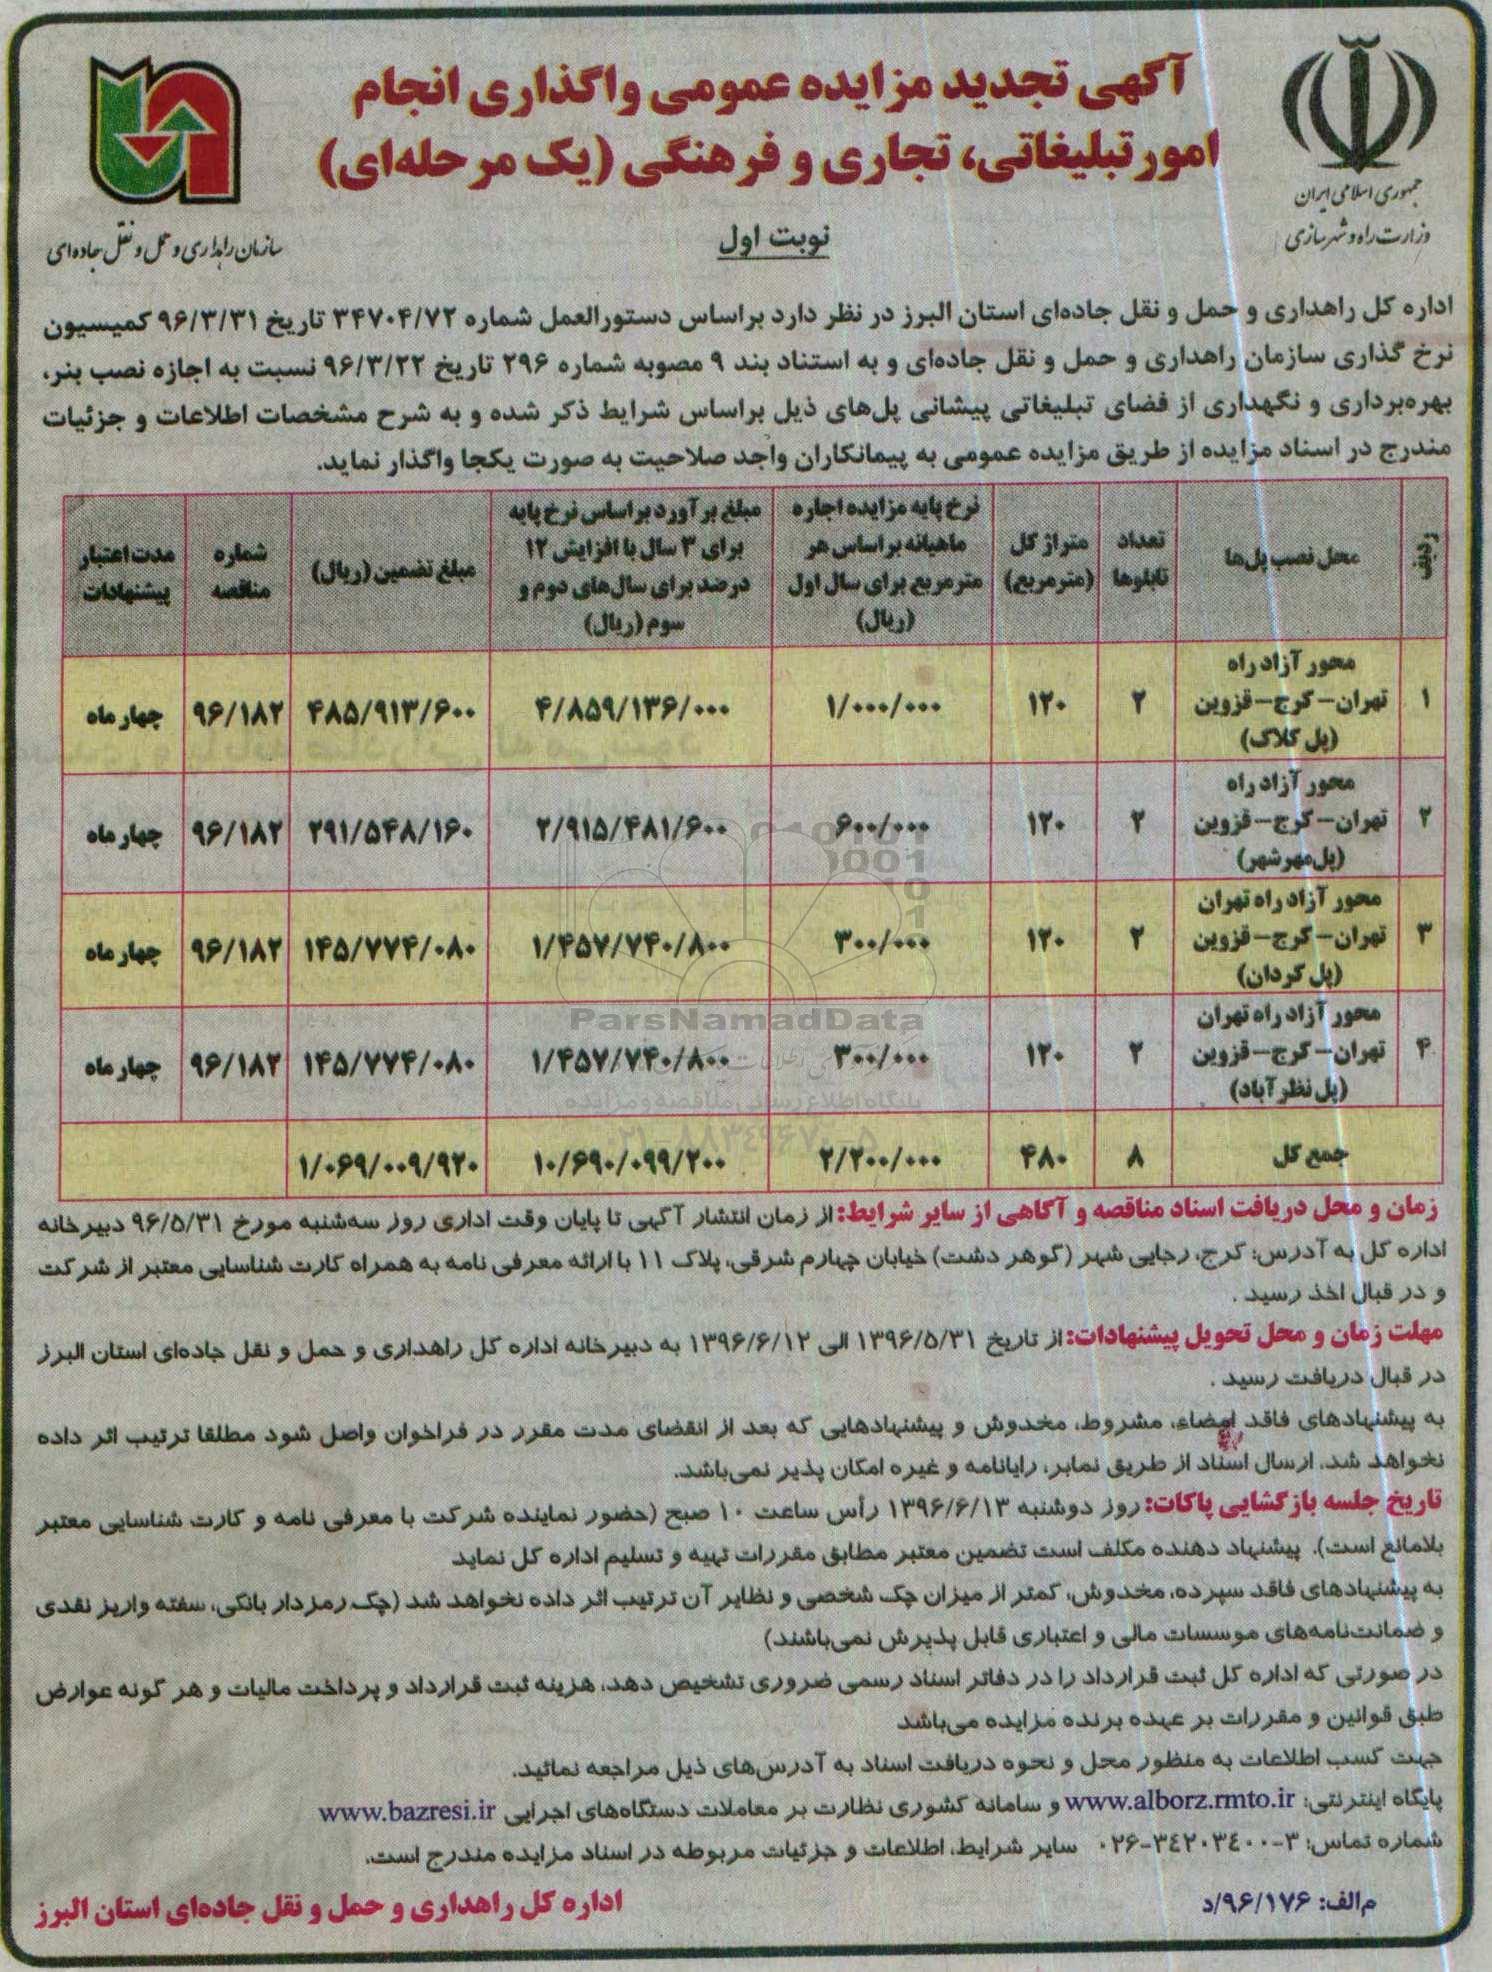 جمهوری اسلامی ایران
وزارت راه و شهرسازی
آگهی تجدید مزایده عمومی واگذاری انجام
امور تبلیغاتی، تجاری و فرهنگی (یک مرحله‌ای)
نوبت اول
سازمان راهداری و حمل و نقل جاده‌ای
اداره کل راهداری و حمل و نقل جاده‌ای استان البرز در نظر دارد براساس دستورالعمل شماره ۳۴۷۰۴/۷۲ تاریخ ۹۶/۳/۳۱ کمیسیون
نرخ گذاری سازمان راهداری و حمل و نقل جاده‌ای و به استناد بند ۹ مصوبه شماره ۲۹۶ تاریخ ۹۶/۳/۲۲ نسبت به اجازه نصب بنر،
بهره‌برداری و نگهداری از فضای تبلیغاتی پیشانی پل‌های ذیل براساس شرایط ذکر شده و به شرح مشخصات اطلاعات و جزئیات
مندرج در اسناد مزایده از طریق مزایده عمومی به پیمانکاران واجد صلاحیت به صورت یکجا واگذار نماید.
ردیف | محل نصب پل‌ها | تعداد تابلوها | متراژ کل (مترمربع) | نرخ پایه مزایده اجاره ماهیانه براساس هر مترمربع برای سال اول (ریال) | مبلغ برآورد براساس نرخ پایه برای ۳ سال با افزایش ۱۲ درصد برای سال‌های دوم و سوم (ریال) | مبلغ تضمین (ریال) | شماره مناقصه | مدت اعتبار پیشنهادات
۱ | محور آزاد راه تهران-کرج-قزوین (پل کلاک) | ۲ | ۱۲۰ | ۱/۰۰۰/۰۰۰ | ۴/۸۵۹/۱۳۶/۰۰۰ | ۴۸۵/۹۱۳/۶۰۰ | ۹۶/۱۸۲ | چهار ماه
۲ | محور آزاد راه تهران-کرج-قزوین (پل‌مهرشهر) | ۲ | ۱۲۰ | ۶۰۰/۰۰۰ | ۲/۹۱۵/۴۸۱/۶۰۰ | ۲۹۱/۵۴۸/۱۶۰ | ۹۶/۱۸۲ | چهار ماه
۳ | محور آزاد راه تهران تهران-کرج-قزوین (پل کردان) | ۲ | ۱۲۰ | ۳۰۰/۰۰۰ | ۱/۴۵۷/۷۴۰/۸۰۰ | ۱۴۵/۷۷۴/۰۸۰ | ۹۶/۱۸۲ | چهار ماه
۴ | محور آزاد راه تهران تهران-کرج-قزوین (پل نظرآباد) | ۲ | ۱۲۰ | ۳۰۰/۰۰۰ | ۱/۴۵۷/۷۴۰/۸۰۰ | ۱۴۵/۷۷۴/۰۸۰ | ۹۶/۱۸۲ | چهار ماه
جمع کل | ۸ | ۴۸۰ | ۲/۲۰۰/۰۰۰ | ۱۰/۶۹۰/۰۹۹/۲۰۰ | ۱/۰۶۹/۰۰۹/۹۲۰
ParsNamadData
پایگاه اطلاع رسانی مناقصه و مزایده
۰۲۱-۸۸۳۴۹۶۷۰-۵
زمان و محل دریافت اسناد مناقصه و آگاهی از سایر شرایط: از زمان انتشار آگهی تا پایان وقت اداری روز سه‌شنبه مورخ ۹۶/۵/۳۱ دبیرخانه
اداره کل به آدرس: کرج، رجایی شهر (گوهر دشت) خیابان چهارم شرقی، پلاک ۱۱ با ارائه معرفی نامه به همراه کارت شناسایی معتبر از شرکت
و در قبال اخذ رسید.
مهلت زمان و محل تحویل پیشنهادات: از تاریخ ۱۳۹۶/۵/۳۱ الی ۱۳۹۶/۶/۱۲ به دبیرخانه اداره کل راهداری و حمل و نقل جاده‌ای استان البرز
در قبال دریافت رسید.
به پیشنهادهای فاقد امضاء، مشروط، مخدوش و پیشنهادهایی که بعد از انقضای مدت مقرر در فراخوان واصل شود مطلقا ترتیب اثر داده
نخواهد شد. ارسال اسناد از طریق نمابر، رایانامه و غیره امکان پذیر نمی‌باشد.
تاریخ جلسه بازگشایی پاکات: روز دوشنبه ۱۳۹۶/۶/۱۳ رأس ساعت ۱۰ صبح (حضور نماینده شرکت با معرفی نامه و کارت شناسایی معتبر
بلامانع است). پیشنهاد دهنده مکلف است تضمین معتبر مطابق مقررات تهیه و تسلیم اداره کل نماید
به پیشنهادهای فاقد سپرده، مخدوش، کمتر از میزان چک شخصی و نظایر آن ترتیب اثر داده نخواهد شد (چک رمزدار بانکی، سفته واریز نقدی
و ضمانت‌نامه‌های موسسات مالی و اعتباری قابل پذیرش نمی‌باشند)
در صورتی که اداره کل ثبت قرارداد را در دفاتر اسناد رسمی ضروری تشخیص دهد، هزینه ثبت قرارداد و پرداخت مالیات و هر گونه عوارض
طبق قوانین و مقررات بر عهده برنده مزایده می‌باشد
جهت کسب اطلاعات به منظور محل و نحوه دریافت اسناد به آدرس‌های ذیل مراجعه نمائید.
پایگاه اینترنتی: www.alborz.rmto.ir و سامانه کشوری نظارت بر معاملات دستگاه‌های اجرایی www.bazresi.ir
شماره تماس: ۳-۳۴۲۰۳۴۰۰-۰۲۶ سایر شرایط، اطلاعات و جزئیات مربوطه در اسناد مزایده مندرج است.
م‌الف: ۹۶/۱۷۶/د
اداره کل راهداری و حمل و نقل جاده‌ای استان البرز